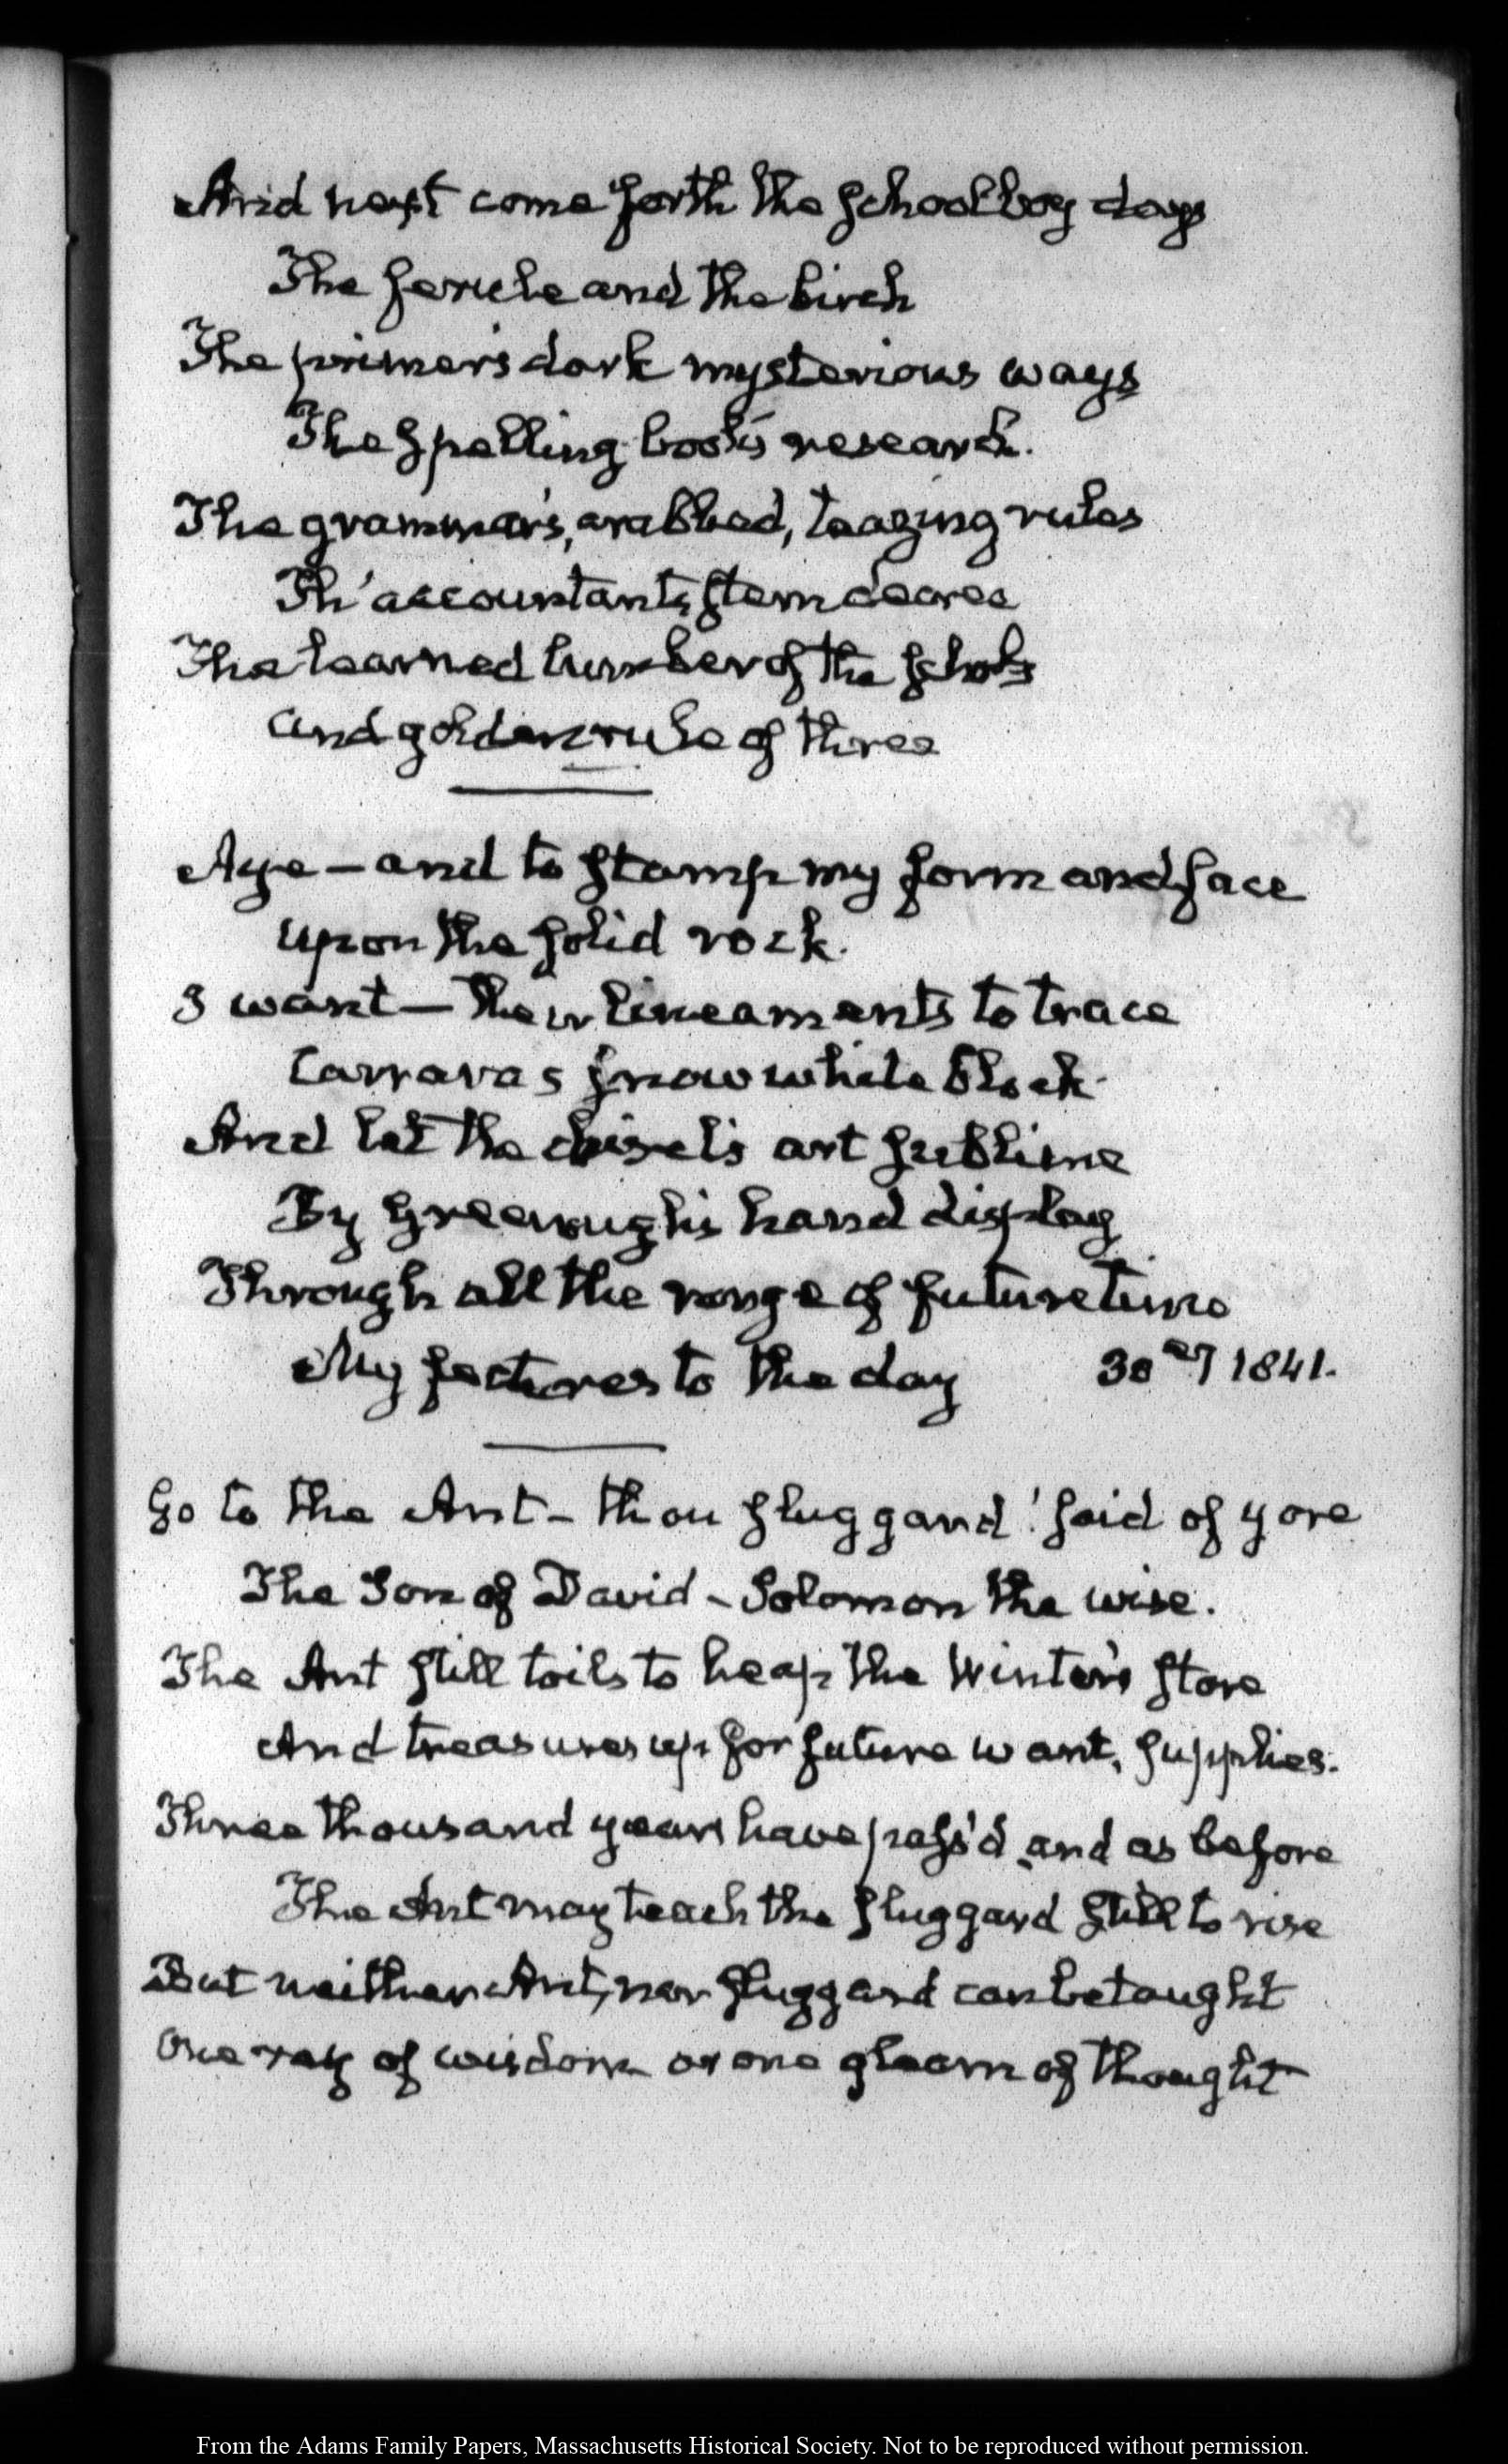 And next come forth the schoolboy days
The ferule and the birch
The primer's dark mysterious ways
The spelling book's research.
The grammar's, crabbed, teazing rules
Th' accountants stern decree
The learned lumber of the schools
And golden rule of three
Aye – and to stamp my form and face
upon the solid rock.
I want – their lineaments to trace
Carrara's snow white block.
And let the chisel's art sublime
By Greenough's hand display
Through all the range of future time
My features to the day
30 1841.
Go to the Ant – thou sluggard! said of yore
The Son of David – Solomon the wise.
The Ant still toils to heap the Winter's store
And treasures up for future want, supplies.
Three thousand years have pass'd and as before
The Ant may teach the sluggard still to rise
But neither Ant, nor sluggard can be taught
One ray of wisdom or one gleam of thought
From the Adams Family Papers, Massachusetts Historical Society. Not to be reproduced without permission.